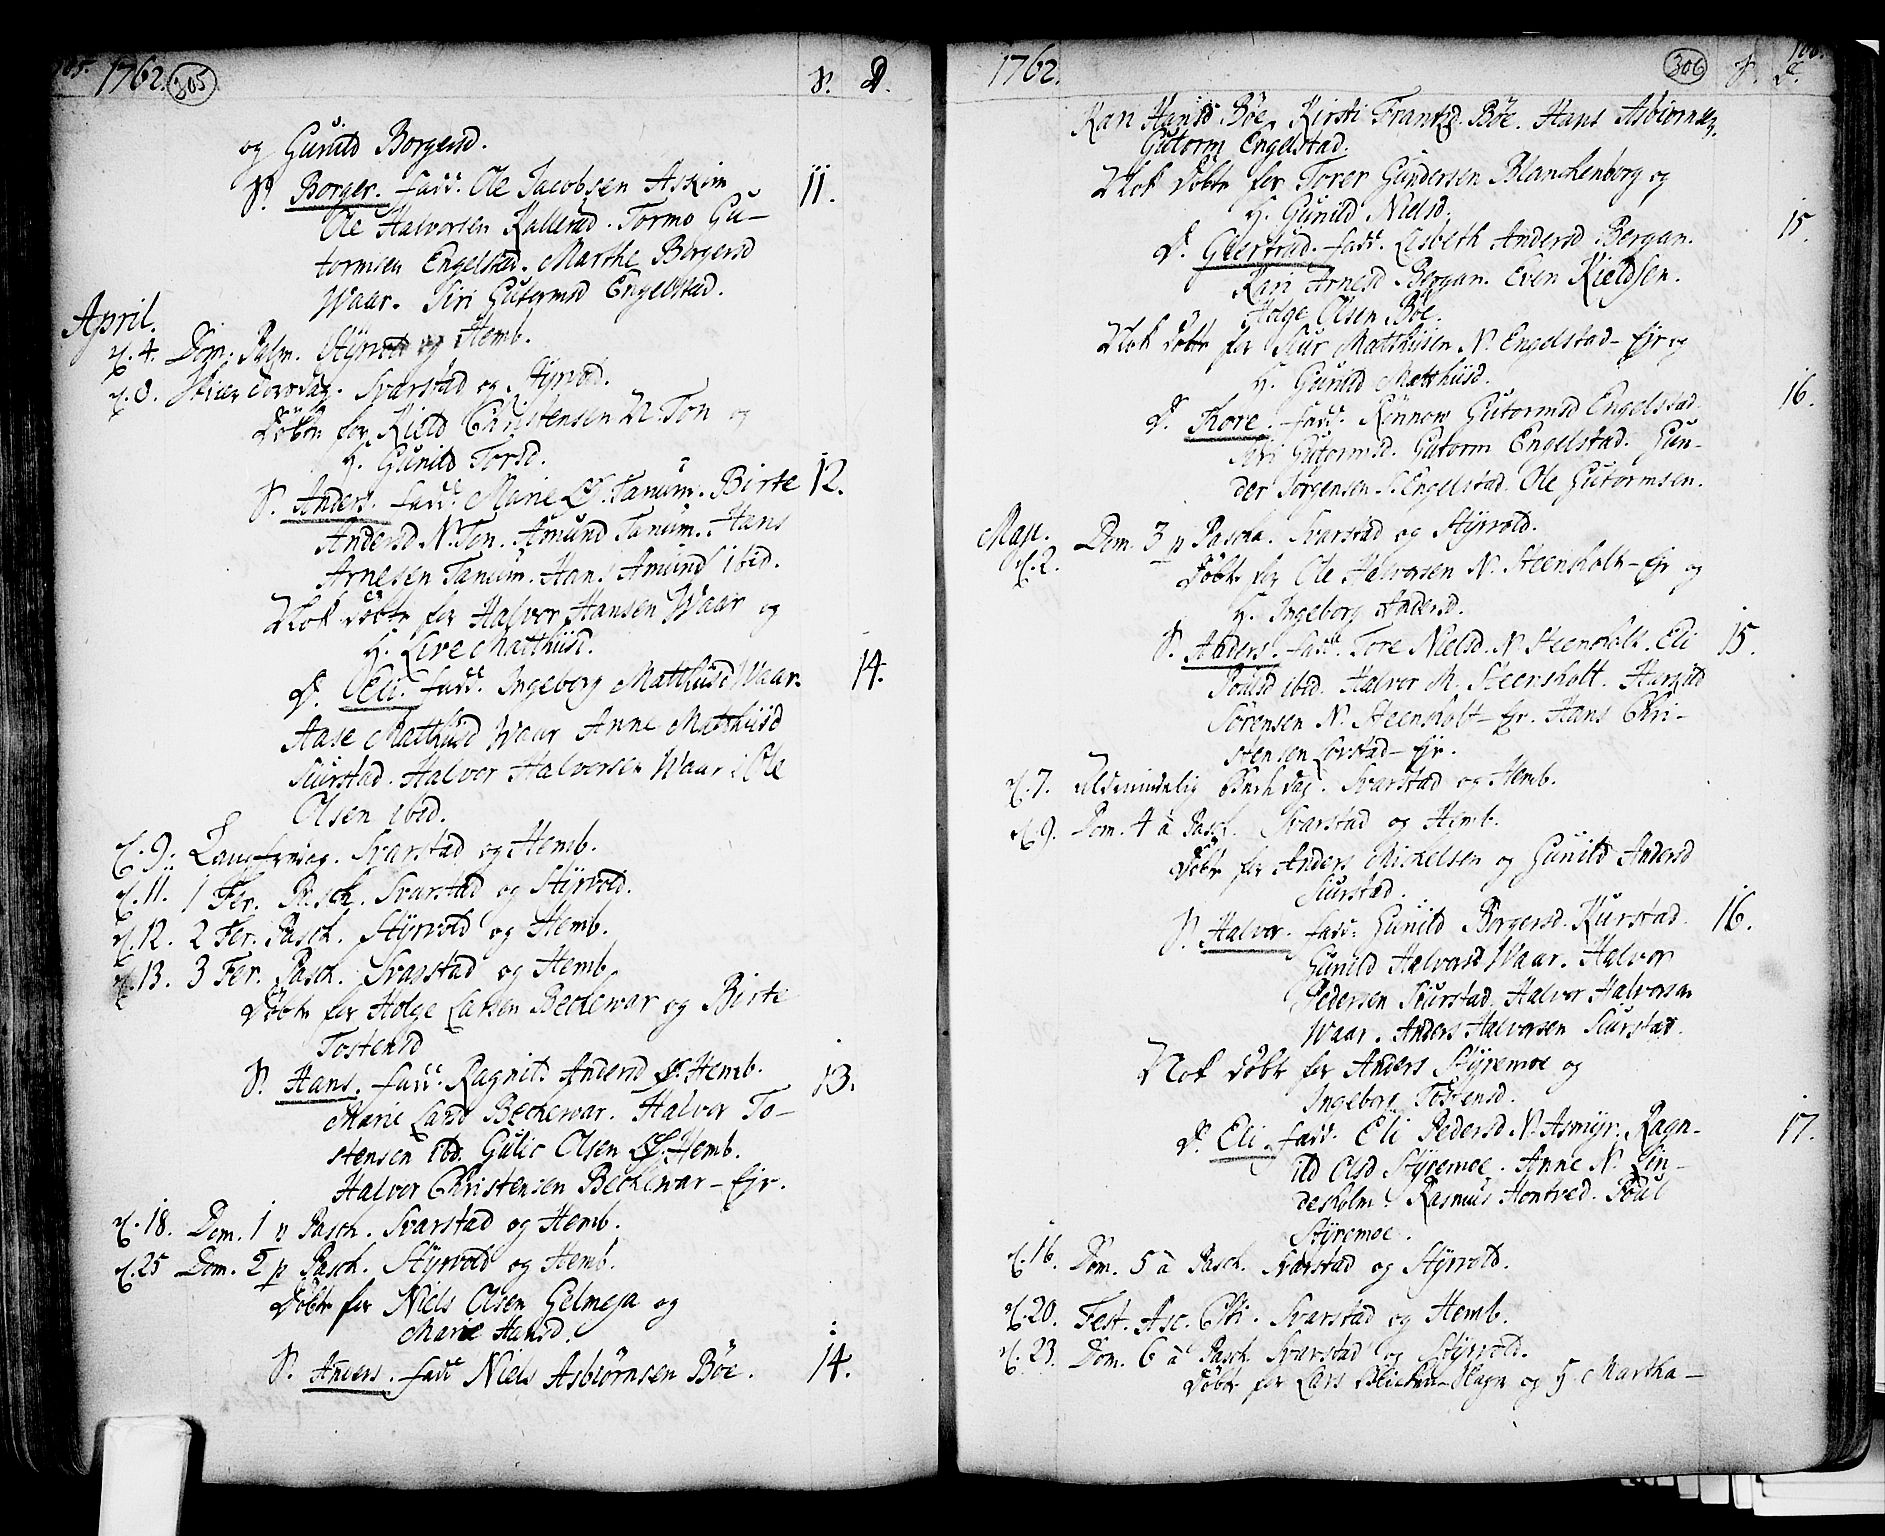 105. 1762. 305 P. D.
og Gunild Borgersd.
P. Borger. fadd. Ole Jacobsen Askim 11.
Ole Halvorsen Kallerud. Tormo Gu-
tormsen Engelstad. Marthe Borgersd
Waar. Siri Gutormsd Engelstad.
April.
d. 4. Dom. Palm. Styrvold og Hemb.
d. 8. Skiær Torsdag. Svarstad og Styrvold.
Döbt for Kield Christensen N. Ton og
H. Gunild Torsd.
P. Anders. fadd. Marie Tanum. Birte 12.
Andersd N. Ton. Amund Tanum. Hans
Arnesen Tanum. Hans Amund ibid.
Nok döbt for Halvor Hansen Waar og
H. Live Matthiisd.
D. Eli. fadd. Ingeborg Matthiisd Waar. 14.
Aase Matthiisd Waar Anne Matthiisd
Siurstad. Halvor Halvorsen Waar Ole
Olsen ibid.
d. 9. Langfredag. Svarstad og Hemb.
d. 11. 1 Fer. Pasch. Svarstad og Styrvold.
d. 12. 2 Fer. Pasch. Styrvold og Hemb.
d. 13. 3 Fer. Pasch. Svarstad og Hemb
Döbt for Holge Larsen Beckewar og Birte
Tostensd
P. Hans. fadd. Ragnil Andersd Hemb. 13.
Marie Larsd Beckewar. Halvor To-
stensen ibd. Gulic Olsen Hemb.
Halvor Christensen Beckewar-Ejr.
d. 18. Dom. 1 p Pasch. Svarstad og Hemb.
d. 25 Dom. 2 p Pasch. Styrvold og Hemb.
Döbt for Niels Olsen Gelmeja og
Marie Hansd.
P. Anders. fadd Niels Asbiörnsen Böe. 14.
1762. 306 106. P. D.
Kari Hansd Böe. Kirsti Frantzd. Böe. Hans Asbiörnsen.
Gutorm Engelstad.
Nok döbt for Torer Gundersen Blanckenborg og
H. Gunild Nielsd.
D. Giertrud. fadd. Lisbeth Andersd Bergan. 15.
Kari Arnesd Bergan. Even Kieldsen.
Holge Olsen Böe.
Nok döbt for Siur Matthiisen N. Engelstad-Ejr og
H. Gunild Matthiisd.
D. Thore. fadd. Rönnow Gutormsd Engelstad. 16.
Siri Gutormsd. Gutorm Engelstad. Gun-
der Jorgensen S. Engelstad. Ole Gutormsen.
Maji.
d. 2. Dom. 3 p Pascha. Svarstad og Styrvold.
Döbt for Ole Halvorsen N. Steensholt-Ejr og
H. Ingeborg Andersd.
P. Anders. fadd. Tore Nielsd. N. Steensholt. Eli 15.
Poulsd ibid. Halvor M. Steensholt. Hargild
Sörensen N. Steensholt-Ejr. Hans Chri-
stensen Lovstad-Ejr.
d. 7. Almindelig Bededag. Svarstad og Hemb.
d. 9. Dom. 4 à Pasch. Svarstad og Hemb.
Döbt for Anders Mickelsen og Gunild Andersd
Siurstad.
P. Halvor. fadd. Gunild Borgersd. Kurstad. 16.
Gunild Halvorsd Waar. Halvor
Pedersen Siurstad. Halvor Halvorsen
Waar. Anders Halvorsen Siurstad.
Nok döbt for Anders Styremoe og
Ingeborg Tostensd.
D. Eli. fadd. Eli Pedersd N. Asmyr. Ragn- 17.
ild Olsd Styremoe. Anne N. Lin-
desholm. Rasmus Hontved. Poul
Styremoe.
d. 16. Dom. 5 à Pasch. Svarstad og Styrvold.
d. 20. Fest. Asc. Chri. Svarstad og Hemb.
d. 23. Dom. 6 à Pasch Svarstad og Styrvold.
Döbt for Lars og H. Martha-